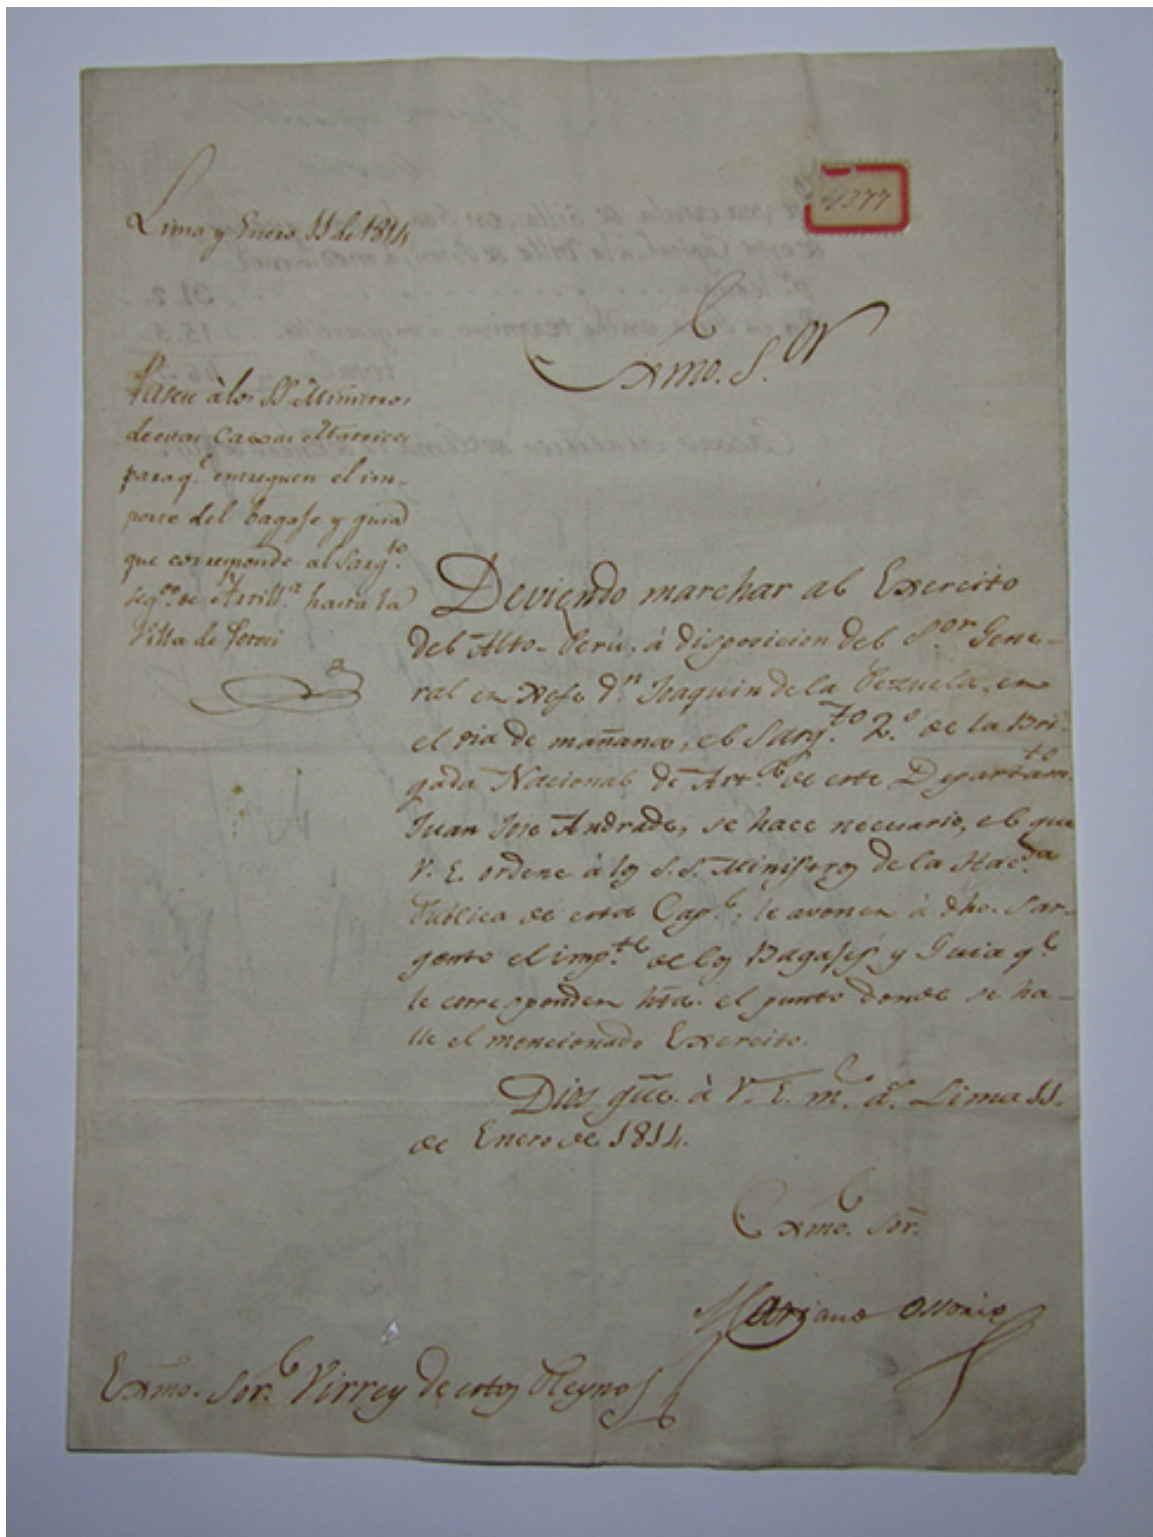 4377
Lima y Enero 11 de 1814
Exmo. S.or
Pasese à los SS Ministros
de estas Caxas Matrices
para q.e entreguen el im-
porte del bagaje y guia
que corresponde al Sarg.to
seg.do de Artill.a hasta la
Villa de Potosi
Deviendo marchar al Exercito
del Alto-Perú, à disposicion del S.or Gene-
ral en Xefe D.n Joaquin de la Pezuela, en
el dia de mañana, el Sarg.to 2.o de la Bri-
gada Nacional de Art.a de este Departam.to
Juan Jose Andrade, se hace necesario, el que
V. E. ordene à los S.S. Ministros de la Hac.da
Publica de esta Cap.l, le avonen à dho. Sar-
gento el imp.te de los Bagajes y Guia q.e
le corresponden hta. el punto donde se ha-
lle el mencionado Exercito.
Dios gue. à V. E. m.s a.s Lima 11.
de Enero de 1814.
Exmo. Sor.
Mariano Ossorio
Exmo. Sor. Virrey de estos Reynos